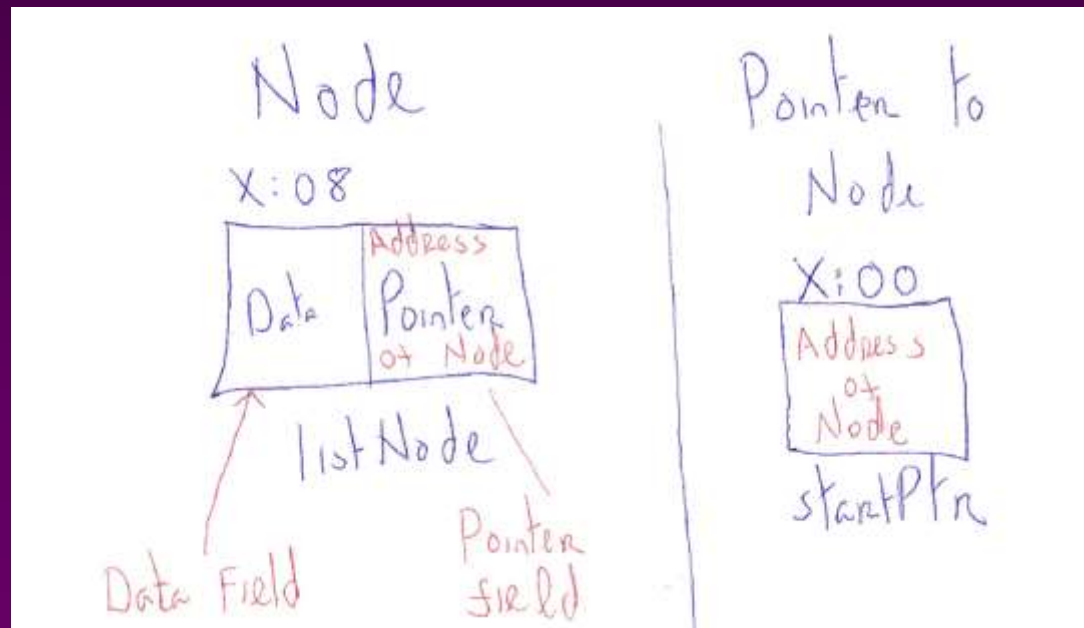 Node
X:08
Data
Address
Pointer
of Node
listNode
Data Field
Pointer
field
Pointer to
Node
X:00
Address
of
Node
startPtr